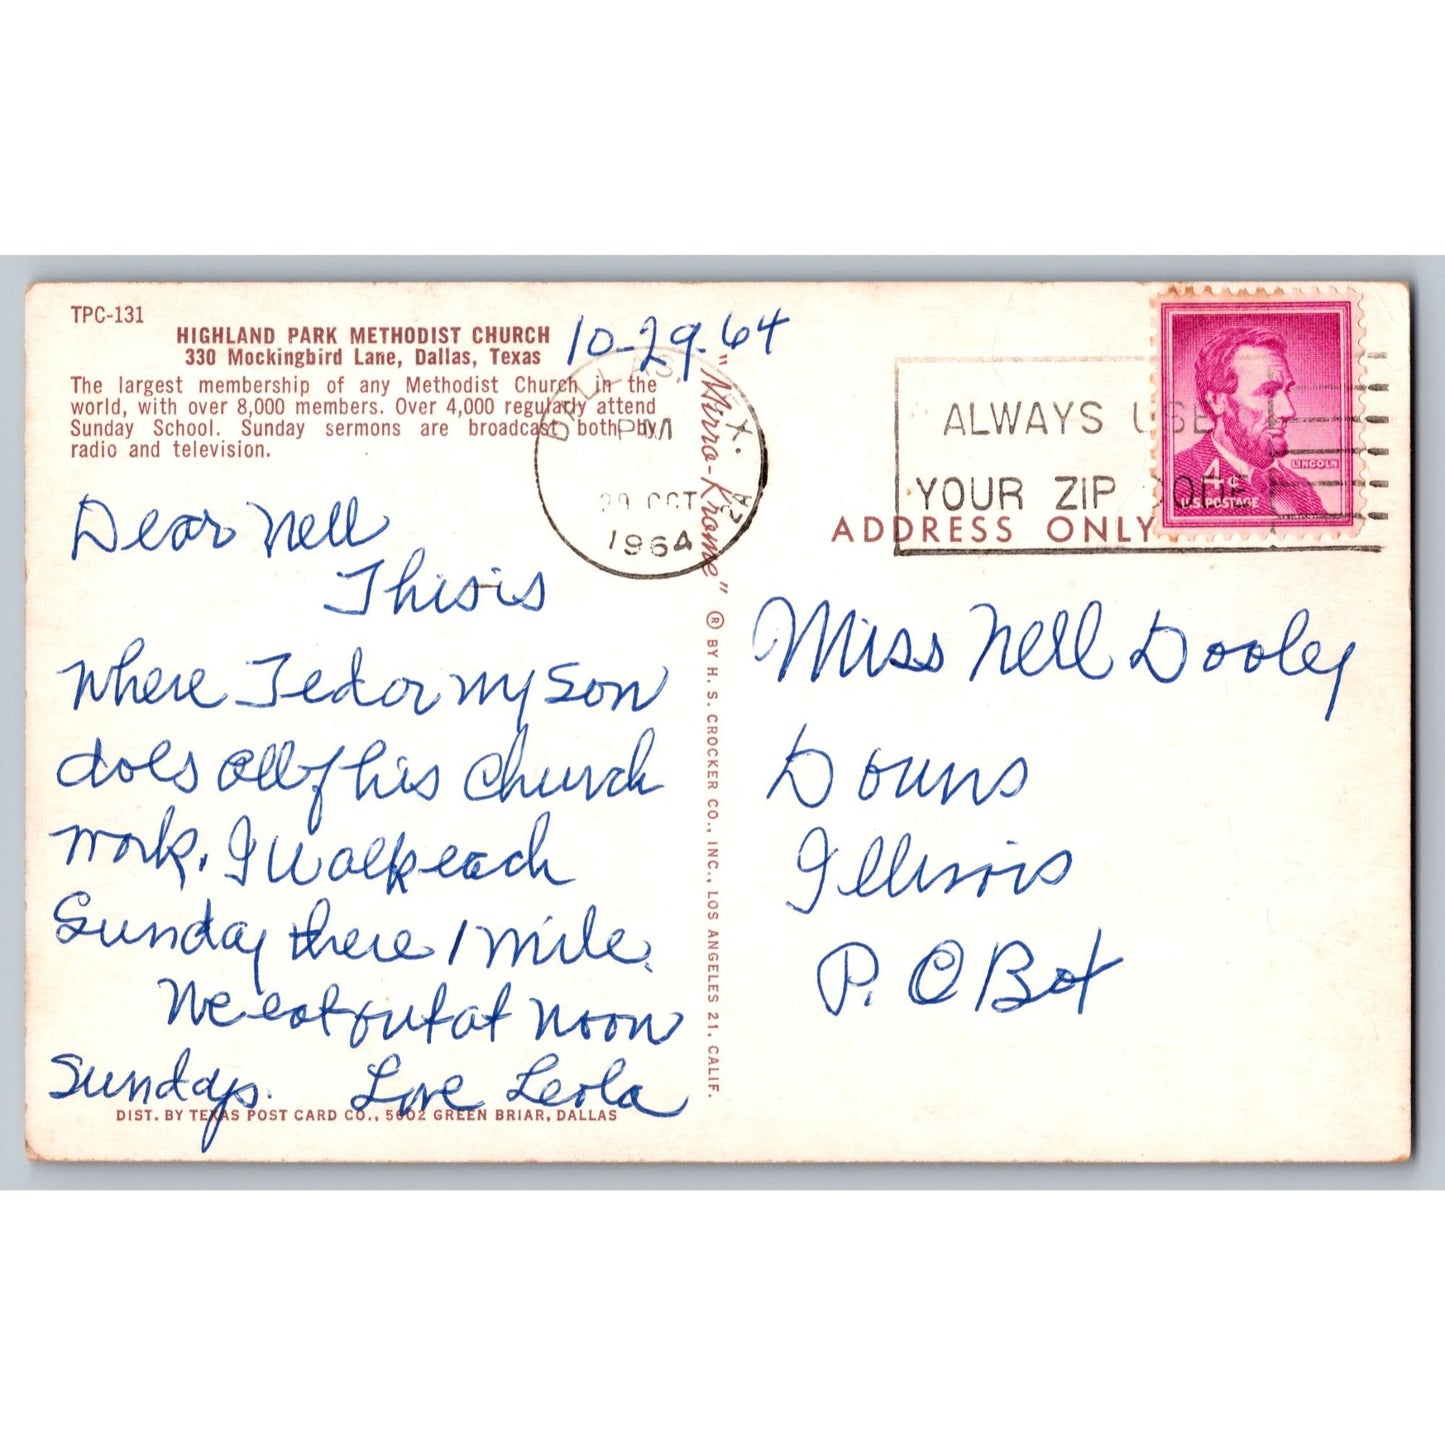 TPC-131
HIGHLAND PARK METHODIST CHURCH
330 Mockingbird Lane, Dallas, Texas
The largest membership of any Methodist Church in the
world, with over 8,000 members. Over 4,000 regularly attend
Sunday School. Sunday sermons are broadcast both by
radio and television.
10-29-64
Dear Nell
This is
where Tedor my son
does all of his Church
work. I walk each
Sunday there 1 mile.
We eat out at noon
Sundays. Love Leola
DIST. BY TEXAS POST CARD CO., 5602 GREEN BRIAR, DALLAS
DALLAS, TEX.
PM
29 OCT
1964
"Mirro-Krome" ® BY H. S. CROCKER CO., INC., LOS ANGELES 21, CALIF.
ALWAYS USE
YOUR ZIP CODE
ADDRESS ONLY
LINCOLN
4¢
U.S. POSTAGE
Miss Nell Dooley
Downs
Illinois
P. O Box